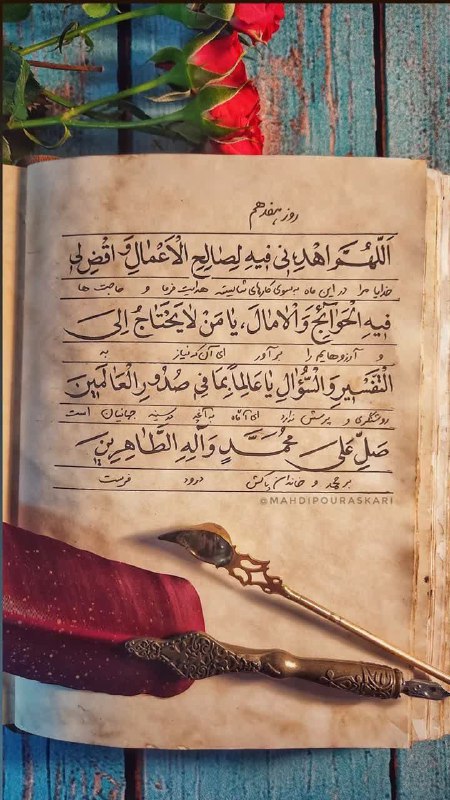 روز هفدهم
اَللّٰهُمَّ اهْدِنی فیهِ لِصالِحِ الْاَعْمٰالِ وَ اقْضِ لی
خدایا مرا در این ماه بسوی کارهای شایسته هدایت فرما و حاجت ها
فیهِ الْحَوآئِجَ وَالْامٰالَ، یٰا مَنْ لٰا یَحْتٰاجُ اِلیَ
و آرزوهایم را برآور ای آن که نیاز به
التَّفْسیرِ وَ السُّؤٰالِ یٰا عٰالِماً بِمٰا فی صُدُورِ الْعٰالَمینَ
روشنگری و پرسش ندارد ای آگاه به آنچه در سینه جهانیان است
صَلِّ عَلیٰ مُحَمَّدٍ وَ آلِهِ الطّٰاهِرینَ
بر محمد و خاندان پاکش درود فرست
@MAHDIPOURASKARI